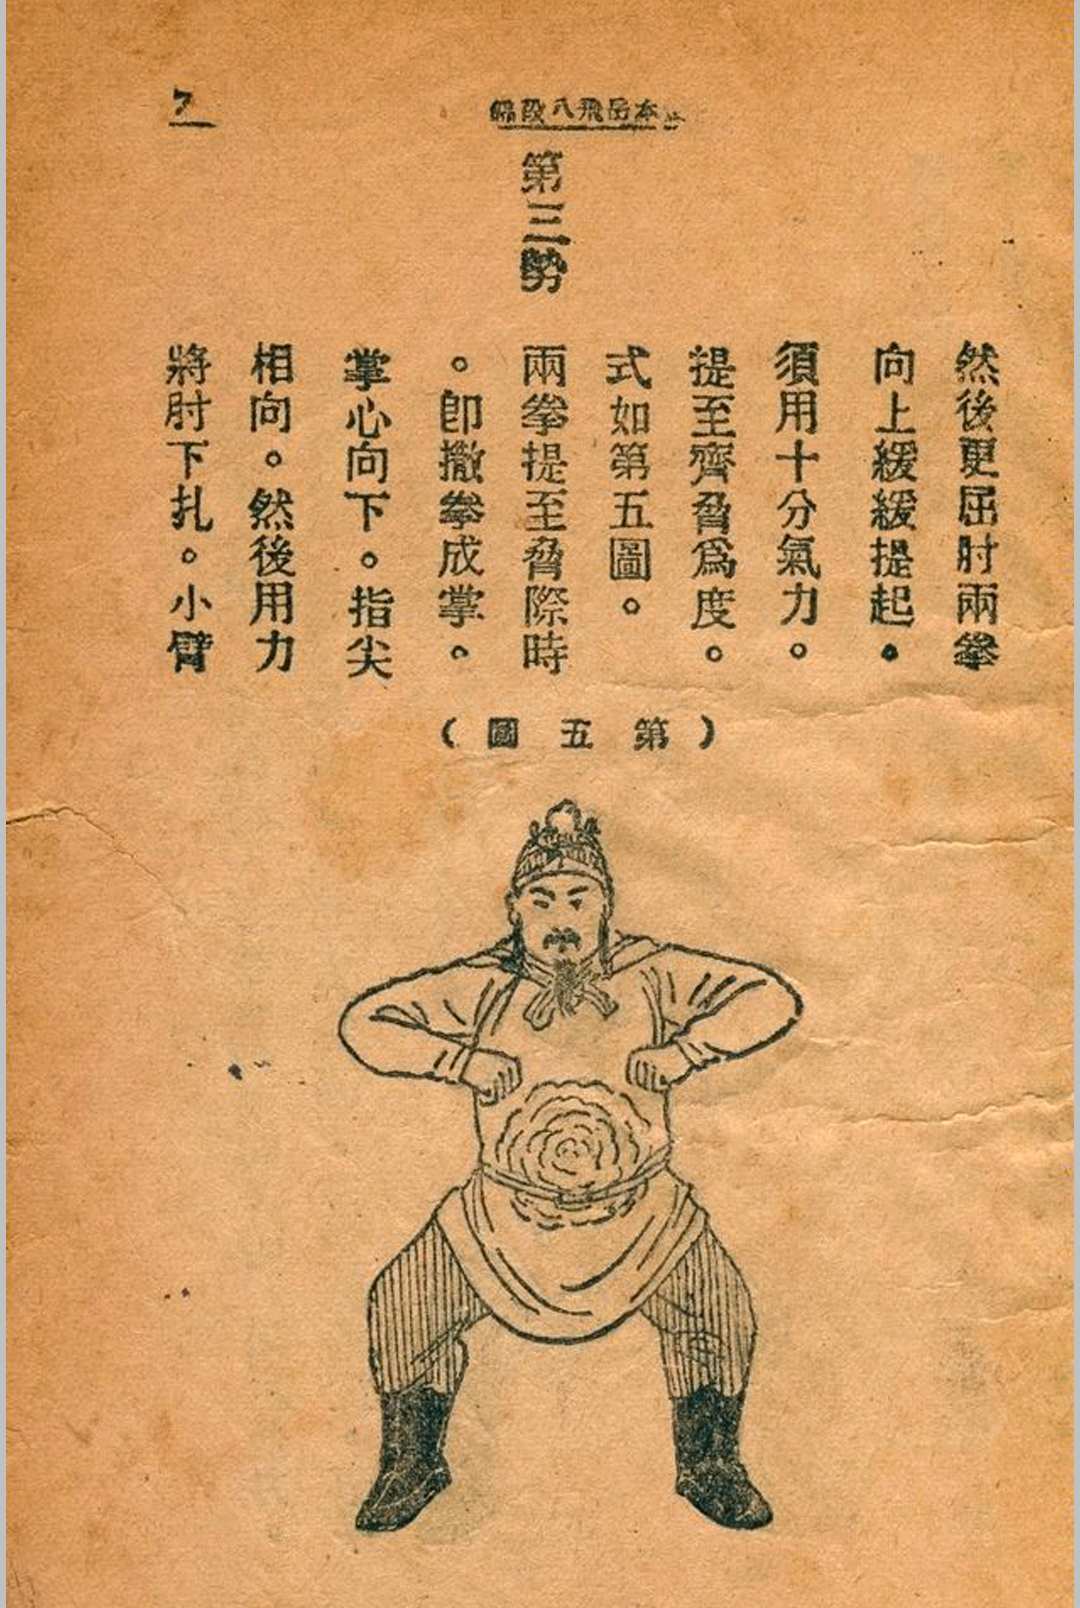 本岳飛八段錦
7
然後更屈肘兩拳
向上緩緩提起。
須用十分氣力。
提至齊脅爲度。
式如第五圖。
第三勢
兩拳提至脅際時
。卽撤拳成掌。
掌心向下。指尖
相向。然後用力
將肘下扎。小臂
(第五圖)